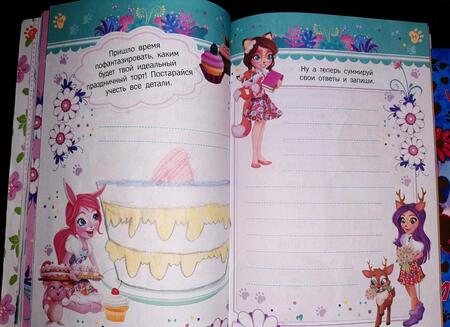 Пришло время
пофантазировать, каким
будет твой идеальный
праздничный торт! Постарайся
учесть все детали.
Ну а теперь суммируй
свои ответы и запиши.